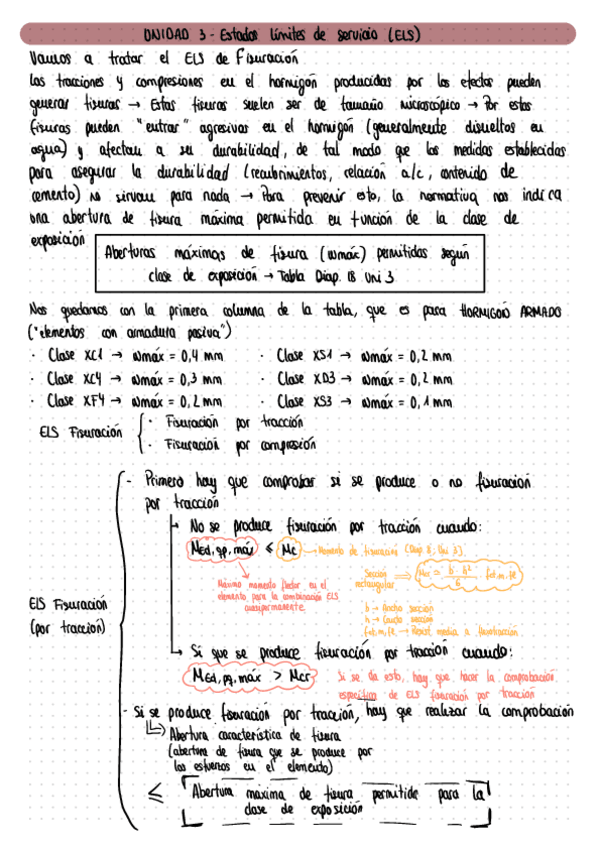 UNIDAD 3 - Estados límites de servicio (ELS)
Vamos a tratar el ELS de Fisuración
Las tracciones y compresiones en el hormigón producidas por los efectos pueden
generar fisuras → Estas fisuras suelen ser de tamaño microscópico → Por estas
fisuras pueden "entrar" agresivos en el hormigón (generalmente disueltos en
agua) y afectan a su durabilidad, de tal modo que las medidas establecidas
para asegurar la durabilidad (recubrimientos, relación a/c, contenido de
cemento) no sirvan para nada → Para prevenir esto, la normativa nos indica
una abertura de fisura máxima permitida en función de la clase de
exposición
Aberturas máximas de fisura (wmáx) permitidas según
clase de exposición → Tabla Diap. 18 Uni 3
Nos quedamos con la primera columna de la tabla, que es para HORMIGÓN ARMADO
("elementos con armadura pasiva")
· Clase XC1 → wmáx = 0,4 mm
· Clase XS1 → wmáx = 0,2 mm
· Clase XC4 → wmáx = 0,3 mm
· Clase XD3 → wmáx = 0,2 mm
· Clase XF4 → wmáx = 0,2 mm
· Clase XS3 → wmáx = 0,1 mm
ELS Fisuración
· Fisuración por tracción
· Fisuración por compresión
ELS Fisuración
(por tracción)
- Primero hay que comprobar si se produce o no fisuración
por tracción
No se produce fisuración por tracción cuando:
MEd,qp,máx ≤ Mc → Momento de fisuración (Diap 8, Uni 3)
Máximo momento flector en el
elemento para la combinación ELS
cuasipermanente.
Sección
rectangular ⇒ Mcr = b · h² / 6 · fct,m,fl
b → Ancho sección
h → Canto sección
fct,m,fl → Resist. media a flexotracción
Si que se produce fisuración por tracción cuando:
MEd,pq,máx > Mcr
Si se da esto, hay que hacer la comprobación
específica de ELS fisuración por tracción
- Si se produce fisuración por tracción, hay que realizar la comprobación
Abertura característica de fisura
(abertura de fisura que se produce por
los esfuerzos en el elemento)
≤ Abertura máxima de fisura permitida para la
clase de exposición